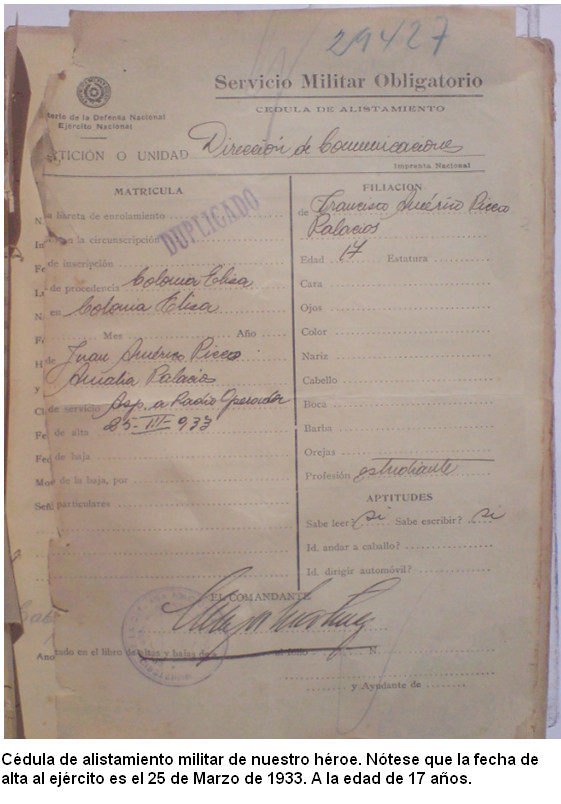 29427
Servicio Militar Obligatorio
CEDULA DE ALISTAMIENTO
sterio de la Defensa Nacional
Ejército Nacional
TICIÓN O UNIDAD Dirección de Comunicaciones
Imprenta Nacional
MATRICULA
DUPLICADO
libreta de enrolamiento
a la circunscripción
de inscripción
de procedencia Colonia Elisa
en Colonia Elisa
Mes Año
de Juan Américo Ricco
y Amalia Palacios
de servicio Asp. a Radio Operador
de alta 25-III-933
de baja
de la baja, por
particulares
FILIACION
de Francisco Américo Ricco
Palacios
Edad 17 Estatura
Cara
Ojos
Color
Nariz
Cabello
Boca
Barba
Orejas
Profesión estudiante
APTITUDES
Sabe leer? si Sabe escribir? si
Id. andar a caballo?
Id. dirigir automóvil?
EL COMANDANTE
tado en el libro de altas y bajas de al folio N.
y Ayudante de
Cédula de alistamiento militar de nuestro héroe. Nótese que la fecha de
alta al ejército es el 25 de Marzo de 1933. A la edad de 17 años.